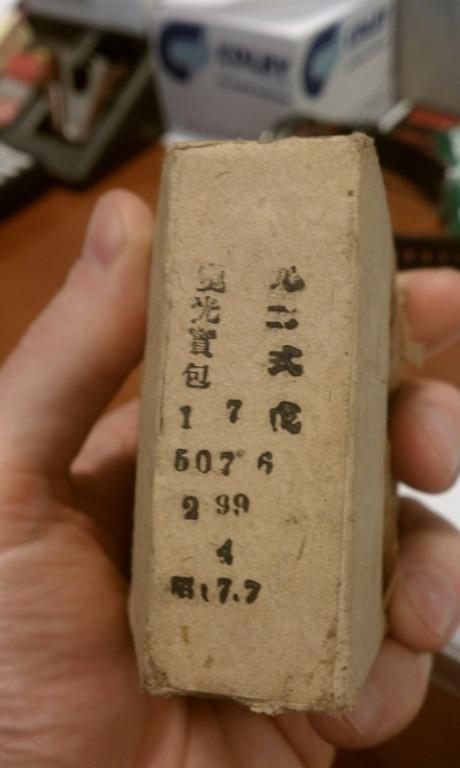 九二式
曳光實包
1 7
507 6
2 99
4
昭17.7